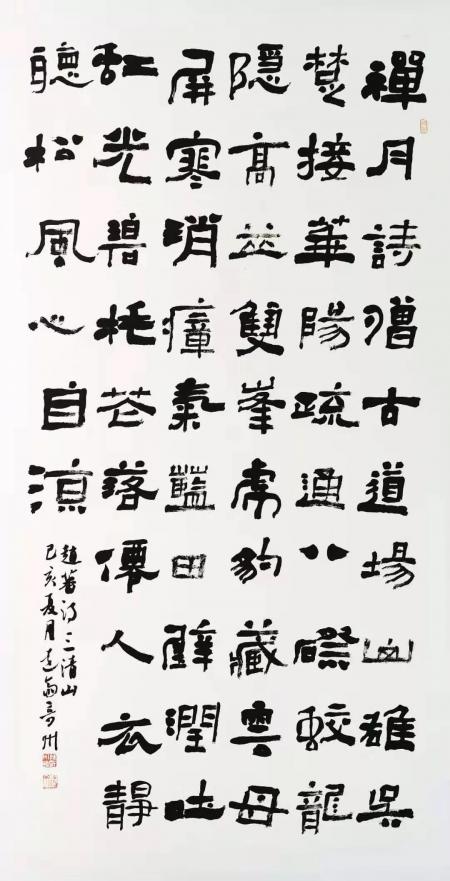 禪月詩僧古道場山雄吳
楚接華陽疏通八磜蛟龍
隱高並雙峯虎豹藏雲母
屏寒消瘴氣藍田璧潤吐
虹光碧桃花落僊人去靜
聽松風心自涼
趙蕃詩三清山
己亥夏月